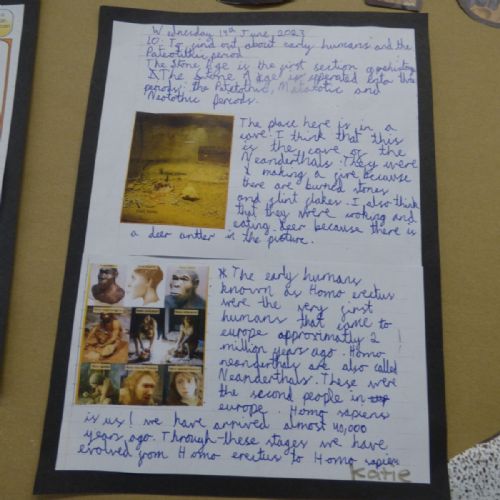 Wednesday 14th June 2023
LO: To find out about early humans and the
Paleolithic period.
The Stone Age is the first section of prehistory
The Stone Age is seperated into three
periods: the Paletothic, and
Neolothic periods.
The place here is in a
cave. I think that this
is the cave of the
Neanderthals. They were
making a fire because
there are burned stones
and flint flakes. I also think
that they were cooking and
eating deer because there is
a deer antler in the picture.
* The early humans
known as Homo erectus
were the very first
humans that came to
europe approximatly 2
million years ago. Homo
neanderthals are also called
Neanderthals. These were
the second people in
europe. Homo sapiens
is us! we have arrived almost 40,000
years ago. Through these stages we have
evolved from Homo erectus to Homo sapiens
Katie